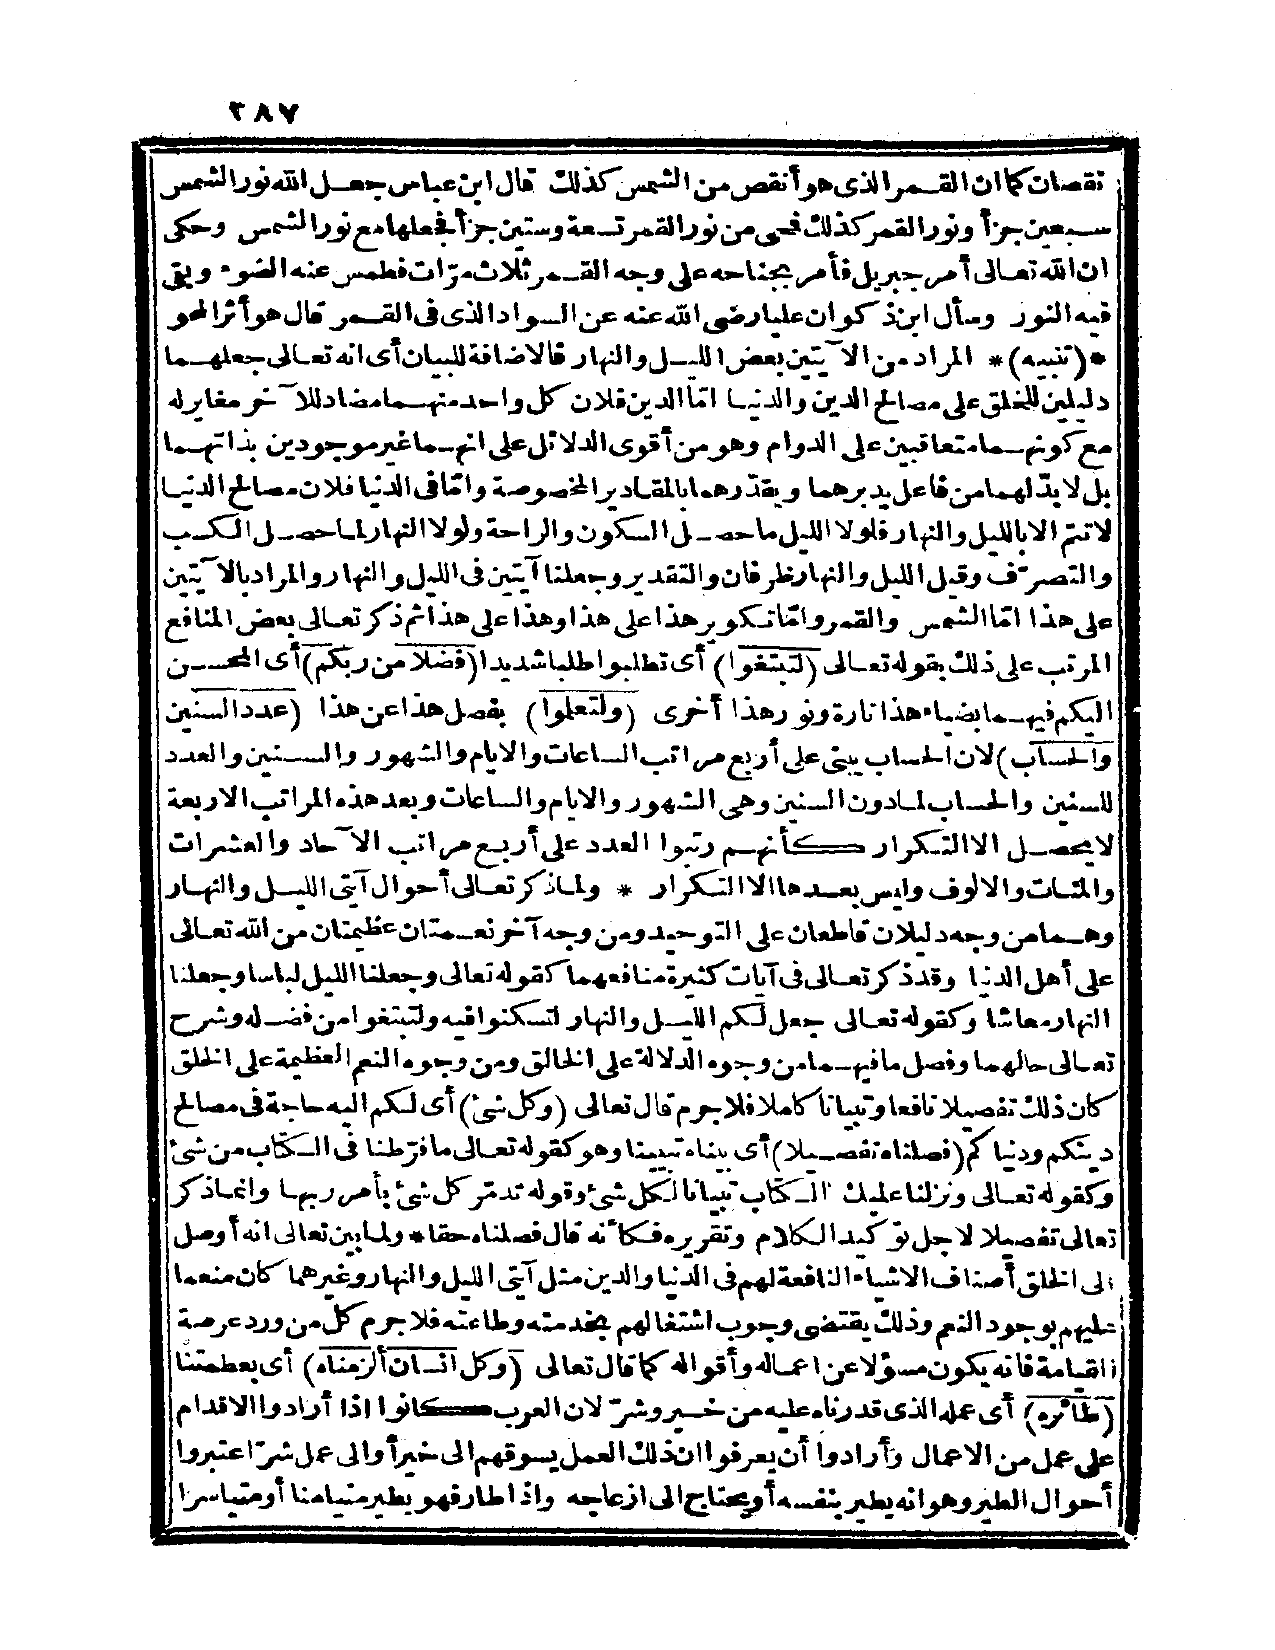 ٢٨٧
نقصان كما ان القمر الذى هو أنقص من الشمس كذلك قال ابن عباس جعل الله نور الشمس
سبعين جزأ ونور القمر كذلك فمحى من نور القمر تسعة وستين جزأ فجعلها مع نور الشمس وحكى
ان الله تعالى أمر جبريل فأمر بجناحه على وجه القمر ثلاث مرّات فطمس عنه الضوء وبقى
فيه النور وسأل ابن ذكوان عليا رضى الله عنه عن السواد الذى فى القمر قال هو أثر المحو
* (تنبيه) * المراد من الآيتين بعض الليل والنهار فالاضافة للبيان أى انه تعالى جعلهما
دليلين للخلق على مصالح الدين والدنيا امّا الدين فلان كل واحد منهما مضاد للآخر مغاير له
مع كونهما متعاقبين على الدوام وهو من أقوى الدلائل على انهما غير موجودين بذاتهما
بل لا بدّ لهما من فاعل يدبرهما ويقدّرهما بالمقادير المخصوصة وامّا فى الدنيا فلان مصالح الدنيا
لا تتمّ الا بالليل والنهار فلولا الليل ما حصل السكون والراحة ولولا النهار لما حصل الكسب
والتصرّف وقيل الليل والنهار ظرفان والتقدير وجعلنا آيتين فى الليل والنهار والمراد بالآيتين
على هذا امّا الشمس والقمر وامّا تكوير هذا على هذا وهذا على هذا ثم ذكر تعالى بعض المنافع
المرتب على ذلك بقوله تعالى (لتبتغوا) أى تطلبوا طلبا شديدا (فضلا من ربكم) أى المحسن
اليكم فيهما بضياء هذا تارة ونور هذا أخرى (ولتعلموا) بفصل هذا عن هذا (عدد السنين
والحساب) لان الحساب يبنى على أربع مراتب الساعات والايام والشهور والسنين والعدد
للسنين والحساب لمادون السنين وهى الشهور والايام والساعات وبعد هذه المراتب الاربعة
لا يحصل الا التكرار كأنهم رتبوا العدد على أربع مراتب الآحاد والعشرات
والمئات والالوف وليس بعدها الا التكرار * ولما ذكر تعالى أحوال آيتى الليل والنهار
وهما من وجه دليلان قاطعان على التوحيد ومن وجه آخر نعمتان عظيمتان من الله تعالى
على أهل الدنيا وقد ذكر تعالى فى آيات كثيرة منافعهما كقوله تعالى وجعلنا الليل لباسا وجعلنا
النهار معاشا وكقوله تعالى جعل لكم الليل والنهار لتسكنوا فيه ولتبتغوا من فضله وشرح
تعالى حالهما وفصل ما فيهما من وجوه الدلالة على الخالق ومن وجوه النعم العظيمة على الخلق
كان ذلك تفصيلا نافعا وتبيانا كاملا فلا جرم قال تعالى (وكل شئ) أى لكم اليه حاجة فى مصالح
دينكم ودنياكم (فصلناه تفصيلا) أى بيناه تبيينا وهو كقوله تعالى ما فرّطنا فى الكتاب من شئ
وكقوله تعالى ونزلنا عليك الكتاب تبيانا لكل شئ وقوله تدمّر كل شئ بأمر ربها وانما ذكر
تعالى تفصيلا لاجل توكيد الكلام وتقريره فكأنه قال فصلناه حقا * ولما بين تعالى انه أوصل
الى الخلق أصناف الاشياء النافعة لهم فى الدنيا والدين مثل آيتى الليل والنهار وغيرهما كان منعما
عليهم بوجود النعم وذلك يقتضى وجوب اشتغالهم بخدمته وطاعته فلا جرم كل من ورد عرصة
القيامة فانه يكون مسؤلا عن اعماله وأقواله كما قال تعالى (وكل انسان ألزمناه) أى بعظمتنا
(طائره) أى عمله الذى قدرناه عليه من خير وشرّ لان العرب كانوا اذا أرادوا الاقدام
على عمل من الاعمال وأرادوا أن يعرفوا ان ذلك العمل يسوقهم الى خير أو الى عمل شرّ اعتبروا
أحوال الطير وهو انه يطير بنفسه أو يحتاج الى ازعاجه واذا طار فهو يطير متيامنا أو متياسرا